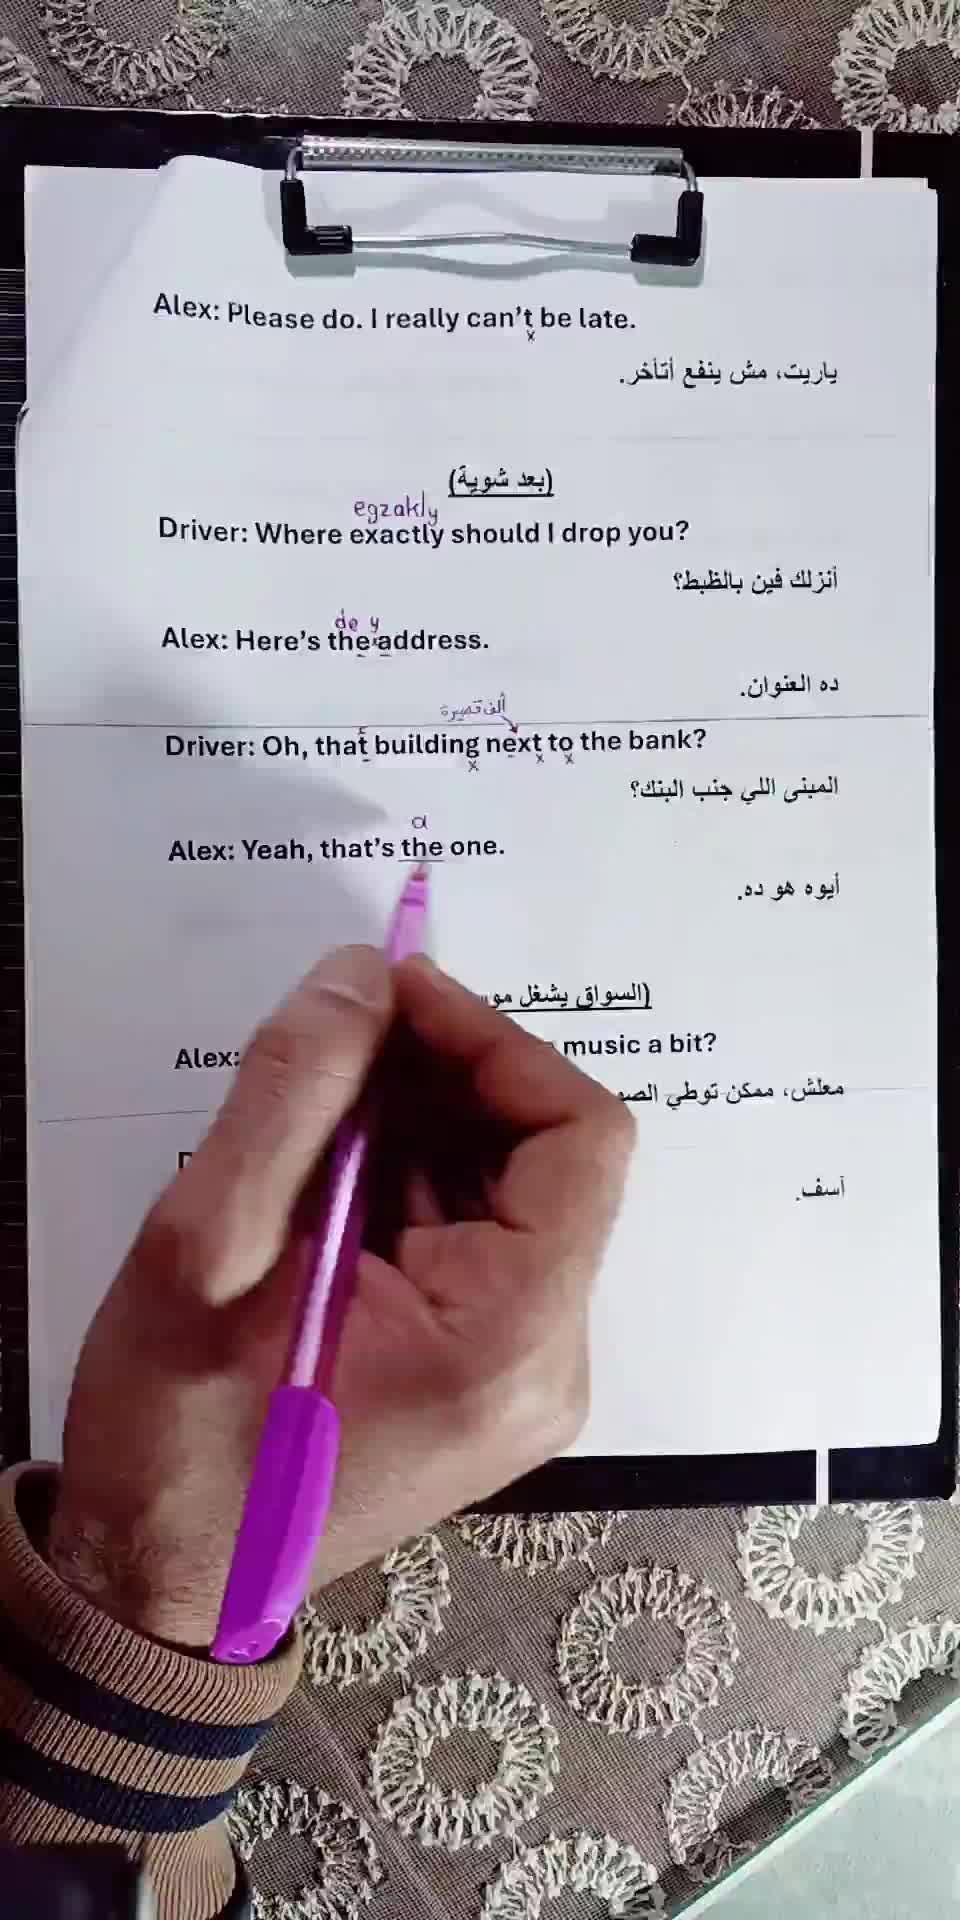 Alex: Please do. I really can't be late.
x
ياريت، مش ينفع أتأخر.
(بعد شوية)
egzakly
Driver: Where exactly should I drop you?
أنزلك فين بالظبط؟
de y
Alex: Here's the address.
ده العنوان.
ألف قصيرة
Driver: Oh, that building next to the bank?
x x x
المبنى اللي جنب البنك؟
a
Alex: Yeah, that's the one.
أيوه هو ده.
(السواق يشغل
Alex: music a bit?
معلش، ممكن توطي
آسف.